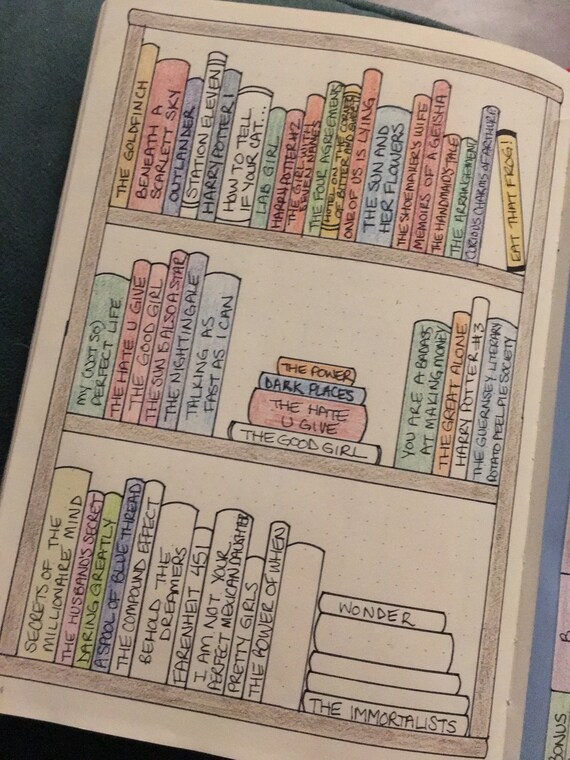 THE GOLDFINCH
BENEATH A
SCARLETT SKY
OUTLANDER
STATION ELEVEN
HARRY POTTER 1
HOW TO TELL
IF YOUR CAT...
LAB GIRL
HARRY POTTER #2
THE GIRL WITH
7 NAMES
THE FOUR AGREEMENTS
HOTEL ON THE CORNER
OF BITTER AND SWEET
ONE OF US IS LYING
THE SUN AND
HER FLOWERS
THE SHOEMAKER'S WIFE
MEMOIRS OF A GEISHA
THE HANDMAID'S TALE
THE ARRANGEMENT
CURIOUS CHARMS OF ARTHUR P
EAT THAT FROG!
MY (NOT SO)
PERFECT LIFE
THE HATE U GIVE
THE GOOD GIRL
THE SUN IS ALSO A STAR
THE NIGHTINGALE
TALKING AS
FAST AS I CAN
THE POWER
DARK PLACES
THE HATE
U GIVE
THE GOOD GIRL
YOU ARE A BADASS
AT MAKING MONEY
THE GREAT ALONE
HARRY POTTER #3
THE GUERNSEY LITERARY
POTATO PEEL PIE SOCIETY
SECRETS OF THE
MILLIONAIRE MIND
THE HUSBAND'S SECRET
DARING GREATLY
A SPOOL OF BLUE THREAD
THE COMPOUND EFFECT
BEHOLD THE
DREAMERS
FARENHEIT 451
I AM NOT YOUR
PERFECT MEXICAN DAUGHTER
PRETTY GIRLS
THE POWER OF WHEN
WONDER
THE IMMORTALISTS
BONUS